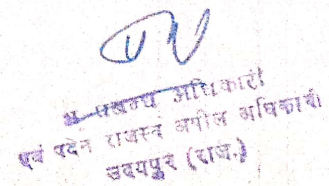 भू प्रबन्ध अधिकारी
एवं पदेन राजस्व अपील अधिकारी
उदयपुर (राज.)